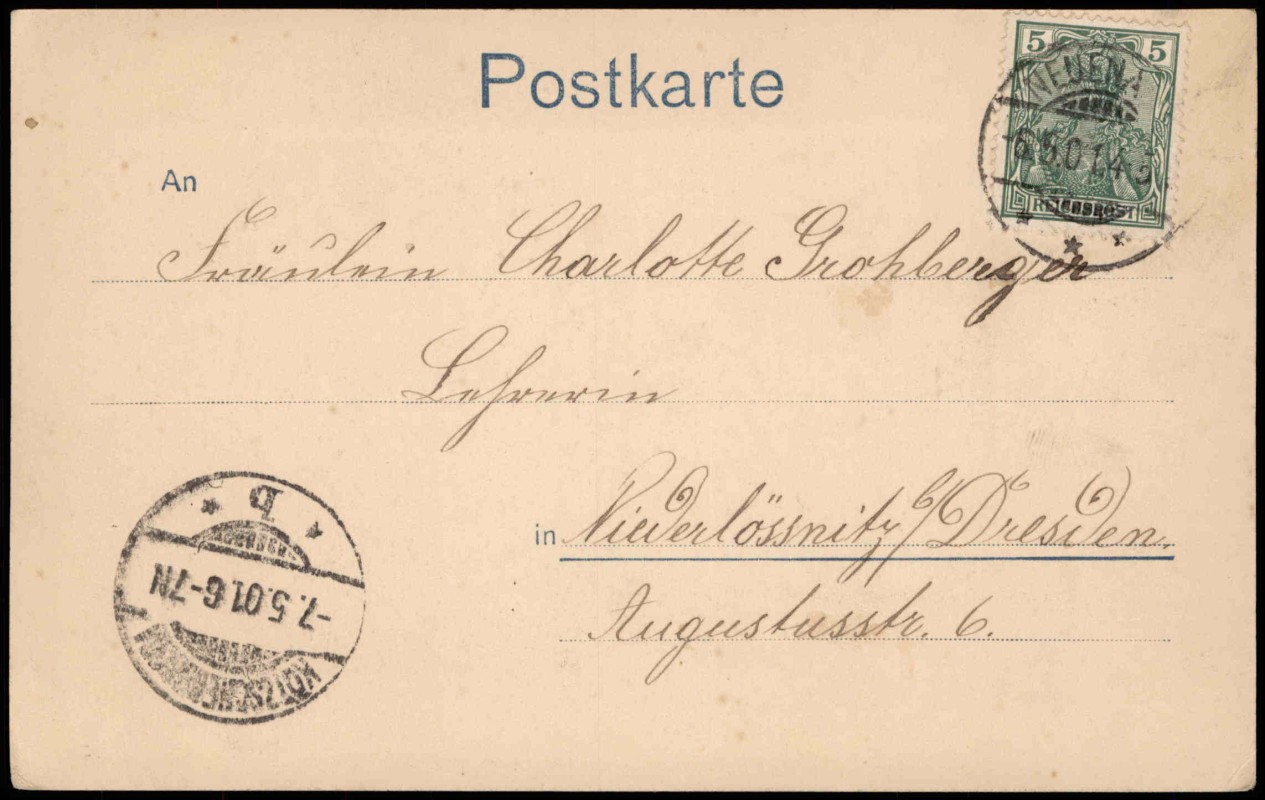 Postkarte
5 5
NEUENA
-6.5.01.4-5
REICHSPOST
An
Fräulein Charlotte Grohberger
Lehrerin
in Niederlössnitz b/Dresden.
Augustusstr. 6.
b
-7.5.01.6-7N